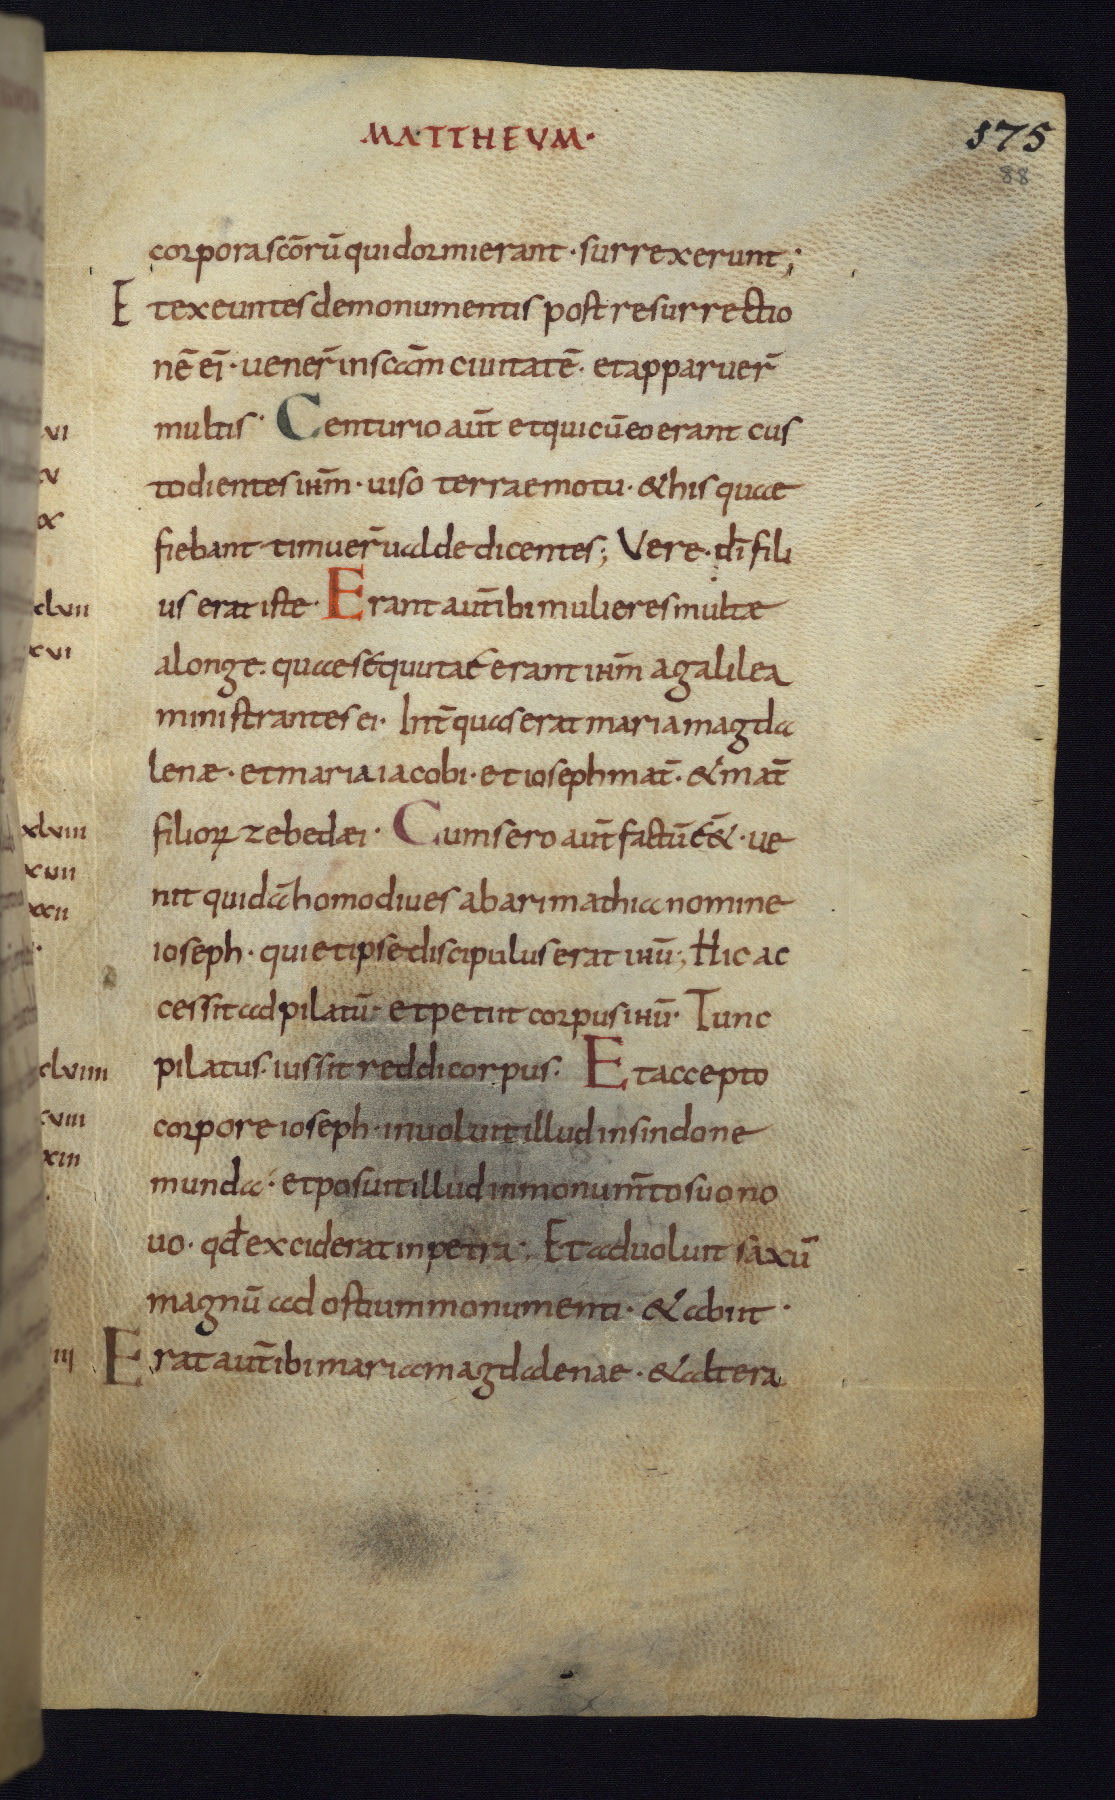 MATTHEVM·
175
88
corpora scōrū qui dormierant · surrexerunt ;
Et exeuntes de monumentis post resurrectio
nē eī · uener̄ in scām ciuitatē · et apparuer̄
multis · Centurio aut̄ et qui cū eo erant cus
todientes ihm̄ · uiso terrae motu · & his quae
fiebant timuer̄ ualde dicentes ; Vere · dī fili
us erat iste · Erant aut̄ ibi mulieres multae
a longe · quae sequutae erant ihm̄ a galilea
ministrantes ei · Int̄ quas erat maria magda
lenæ · et maria iacobi · et ioseph mat̄ · & mat̄
filioꝝ zebedæi · Cum sero aut̄ factū ēē& · ue
nit quidā homo diues ab arimathia nomine
ioseph · qui et ipse discipulus erat ihū ; Hic ac
cessit ad pilatū · et petiit corpus ihū · Tunc
pilatus · iussit reddi corpus · Et accepto
corpore ioseph · inuoluit illud in sindone
munda · et posuit illud in monum̄to suo no
uo · qđ exciderat in petra · Et aduoluit saxū
magnū ad ostium monumenti · & abiit ·
Erat aut̄ ibi maria magdalenae · & altera
vi
v
x
xlvii
xvi
xlviii
xvii
xxii
xlviiii
xviii
xiii
iii